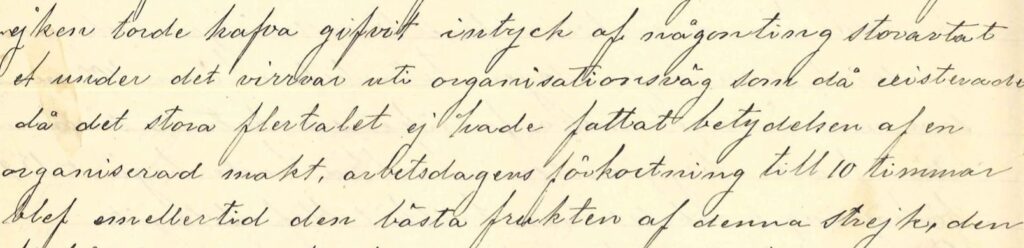 ejken torde hafva gifvit intyck af någonting storartat
et under det virrvar uti organisationsväg som då existerade
då det stora flertalet ej hade fattat betydelsen af en
organiserad makt, arbetsdagens förkortning till 10 timmar
blef emellertid den bästa frukten af denna strejk, den